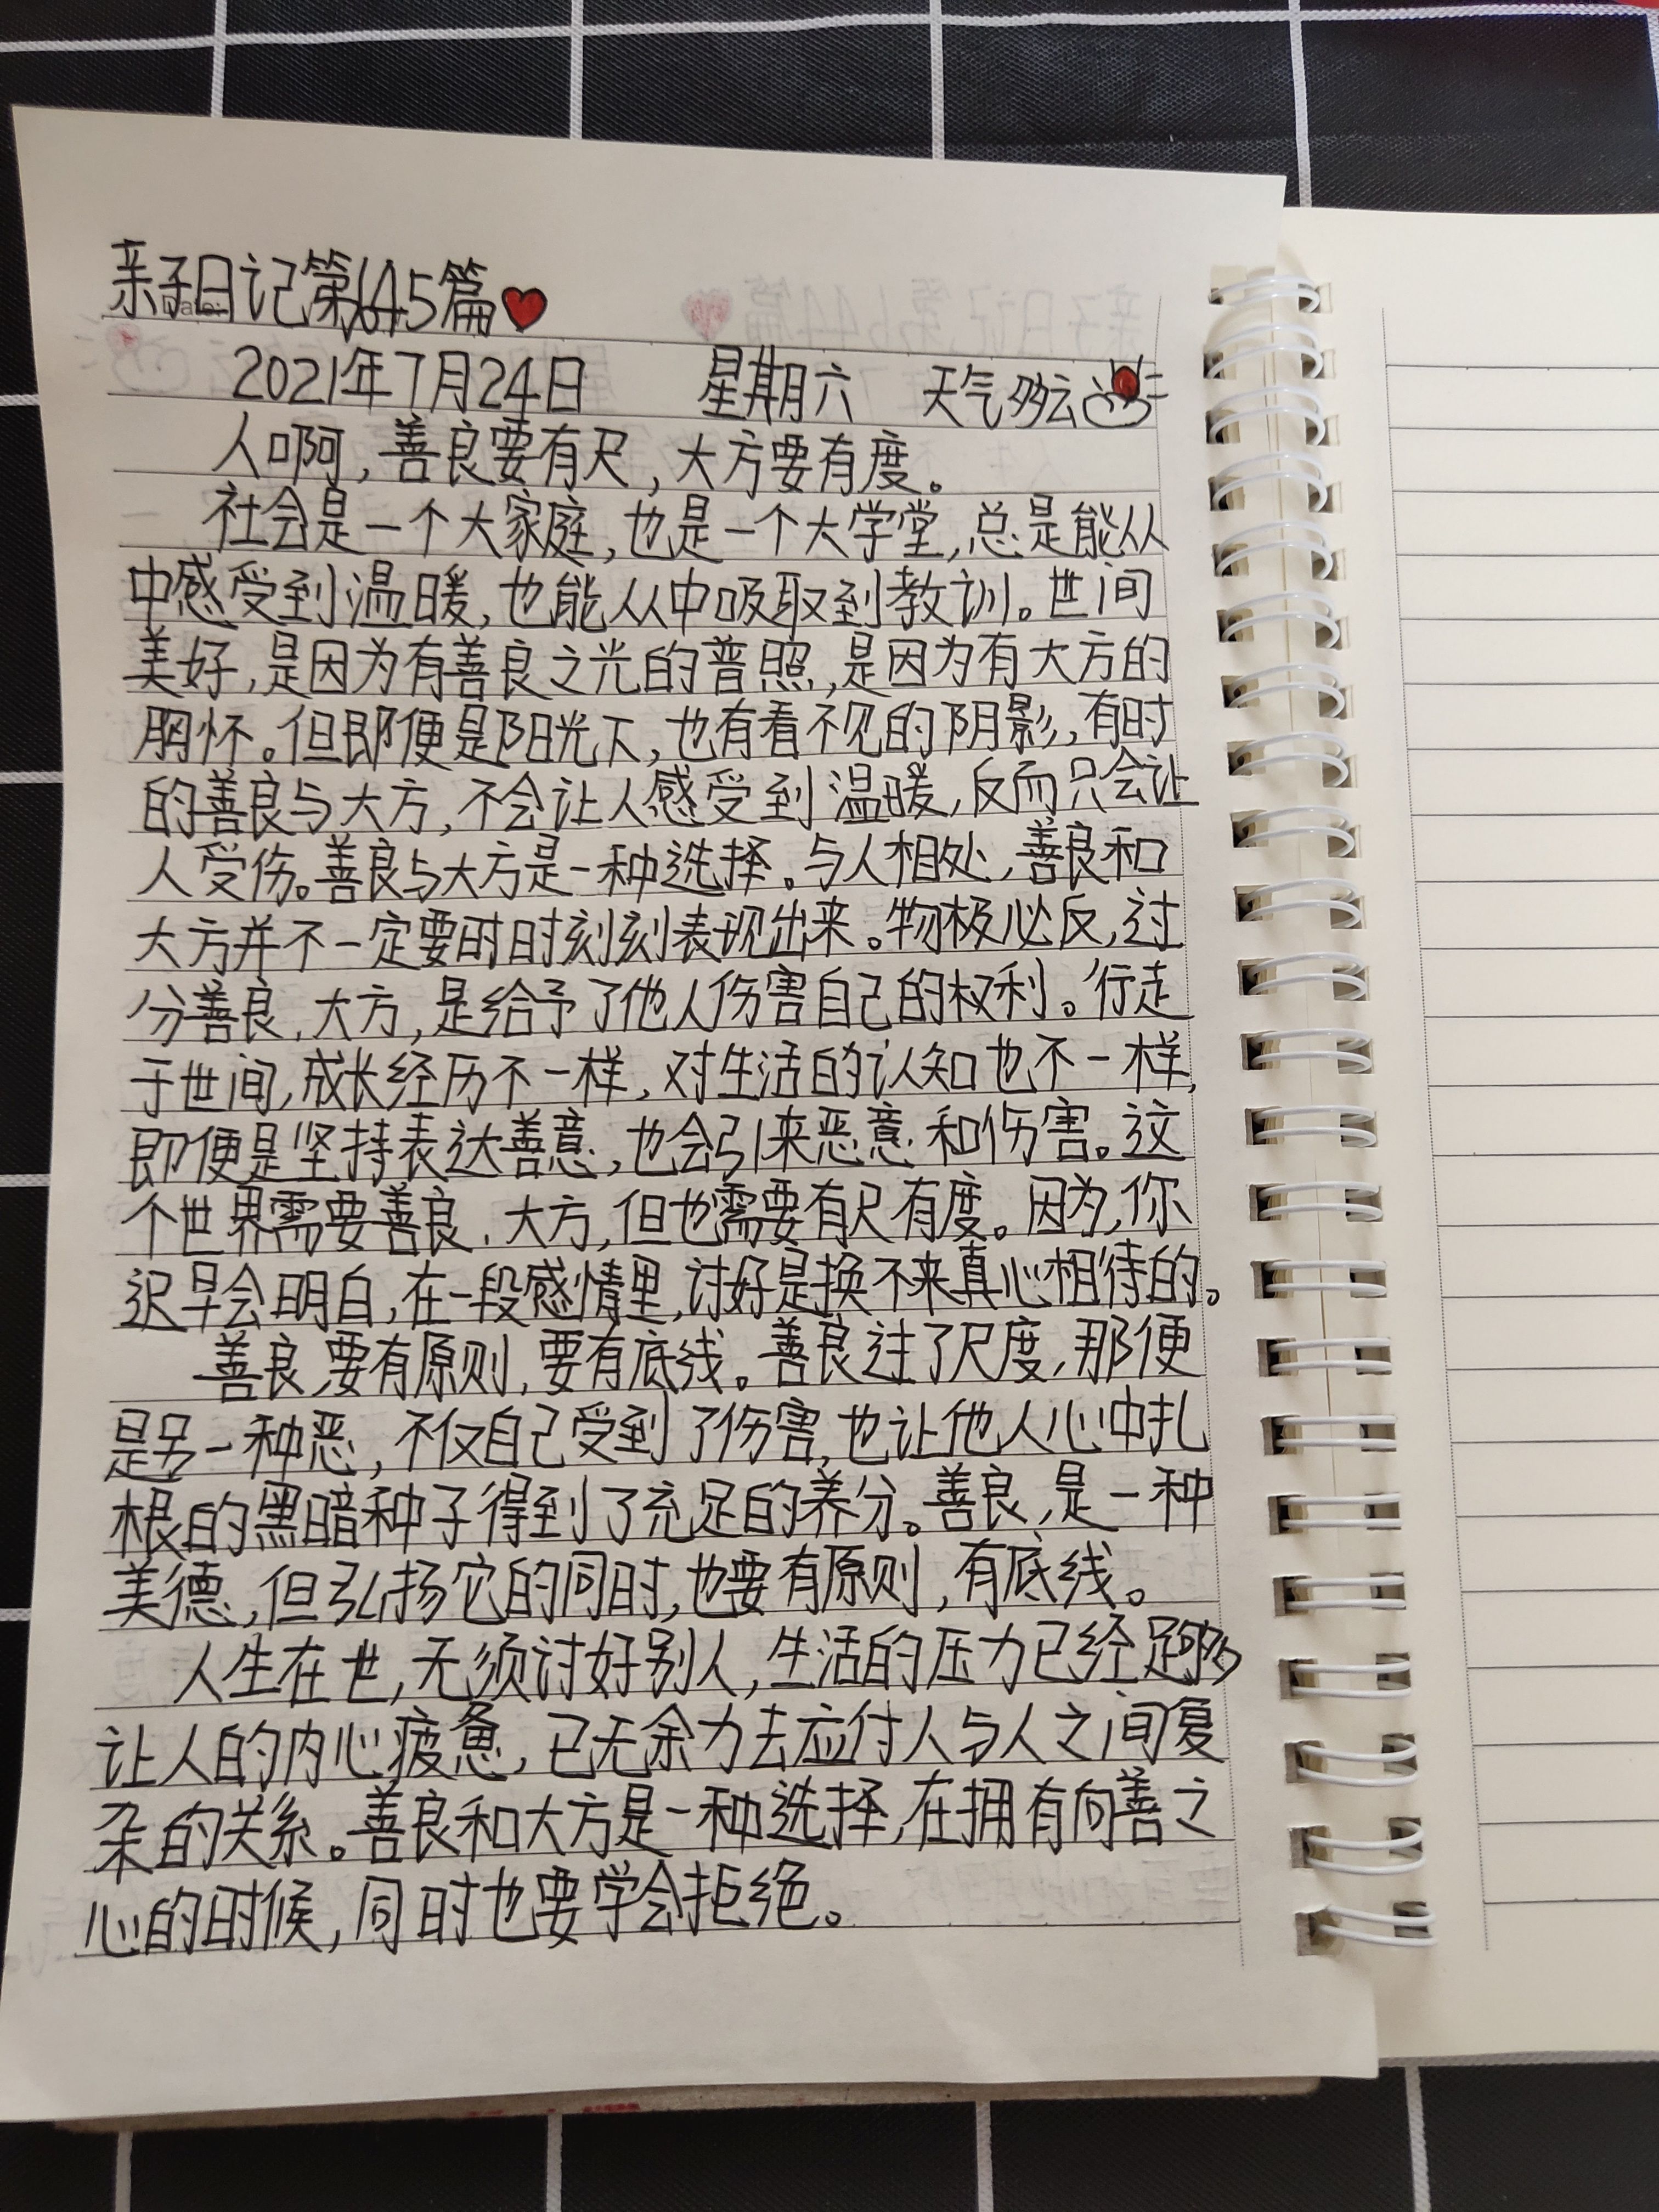 亲子日记第645篇
Date:
2021年7月24日 星期六 天气多云
人啊,善良要有尺,大方要有度。
社会是一个大家庭,也是一个大学堂,总是能从
中感受到温暖,也能从中吸取到教训。世间
美好,是因为有善良之光的普照,是因为有大方的
胸怀。但即便是阳光下,也有看不见的阴影,有时
的善良与大方,不会让人感受到温暖,反而只会让
人受伤。善良与大方是一种选择。与人相处,善良和
大方并不一定要时时刻刻表现出来。物极必反,过
分善良、大方,是给予了他人伤害自己的权利。行走
于世间,成长经历不一样,对生活的认知也不一样,
即便是坚持表达善意,也会引来恶意和伤害。这
个世界需要善良、大方,但也需要有尺有度。因为,你
迟早会明白,在一段感情里,讨好是换不来真心相待的。
善良,要有原则,要有底线。善良过了尺度,那便
是另一种恶,不仅自己受到了伤害,也让他人心中扎
根的黑暗种子得到了充足的养分。善良,是一种
美德,但弘扬它的同时,也要有原则,有底线。
人生在世,无须讨好别人,生活的压力已经足够
让人的内心疲惫,已无余力去应付人与人之间复
杂的关系。善良和大方是一种选择,在拥有向善之
心的时候,同时也要学会拒绝。